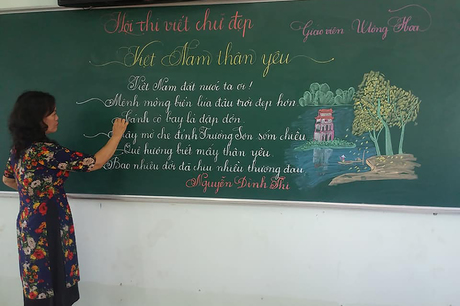 Hội thi viết chữ đẹp
Giáo viên Hồng Hoa
Việt Nam thân yêu
Việt Nam đất nước ta ơi!
Mênh mông biển lúa đâu trời đẹp hơn
Cánh cò bay lả dập dờn
Mây mờ che đỉnh Trường Sơn sớm chiều
Quê hương biết mấy thân yêu
Bao nhiêu đời đã chịu nhiều thương đau
Nguyễn Đình Thi